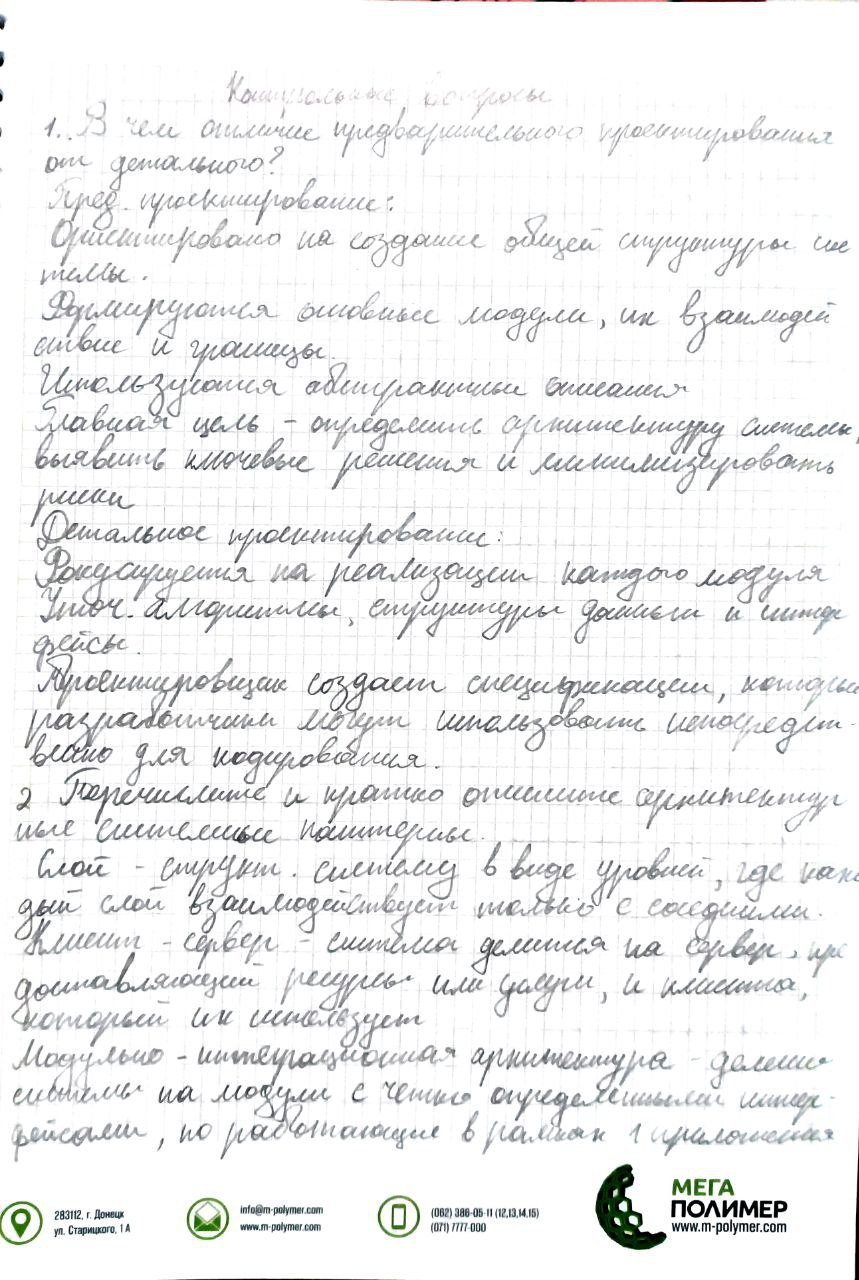 Контрольные вопросы
1. В чем отличие предварительного проектирования
от детального?
Пред. проектирование:
Ориентировано на создание общей структуры сис
темы.
Формируются основные модули, их взаимодей
ствие и границы.
Используются абстрактные описания
Главная цель - определить архитектуру системы,
выявить ключевые решения и минимизировать
риски
Детальное проектирование:
Фокусируется на реализации каждого модуля
Уточ. алгоритмы, структуры данных и интер
фейсы.
Проектировщик создает спецификации, которые
разработчики могут использовать непосредст-
венно для кодирования.
2 Перечислите и кратко опишите архитектур
ные системные паттерны.
Слой - структ. систему в виде уровней, где каж
дый слой взаимодействует только с соседними.
Клиент - сервер - система делится на сервер, пре
доставляющий ресурсы или услуги, и клиента,
который их использует
Модульно - интеграционная архитектура - деление
системы на модули с четко определенными интер-
фейсами, но работающие в рамках 1 приложения
283112, г. Донецк
ул. Старицкого, 1 А
info@m-polymer.com
www.m-polymer.com
(062) 386-05-11 (12,13,14,15)
(071) 7777-000
МЕГА
ПОЛИМЕР
www.m-polymer.com